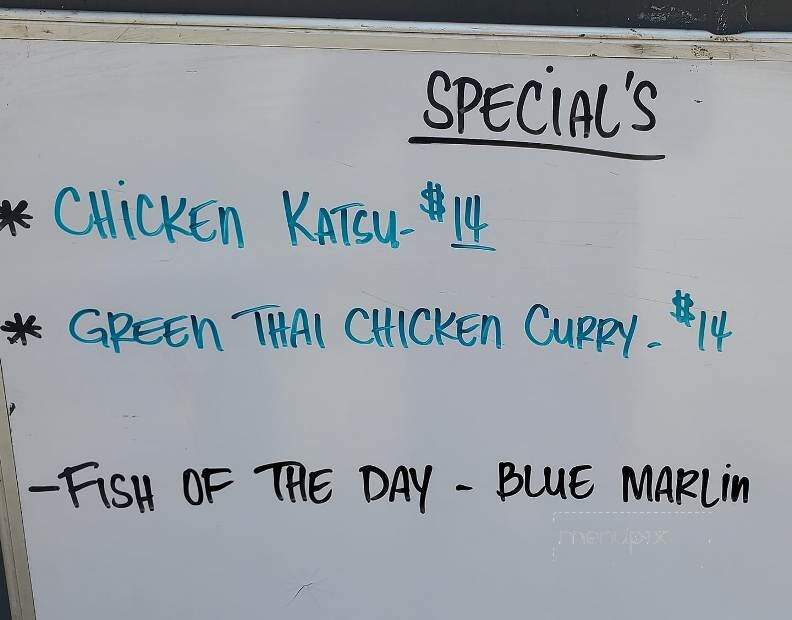 SPECiAL'S
* CHiCKEn KATSU- $14
* GREEn THAI CHICKEn CURRY - $14
- FiSH OF THE DAY - BLUE MARLin
menupix